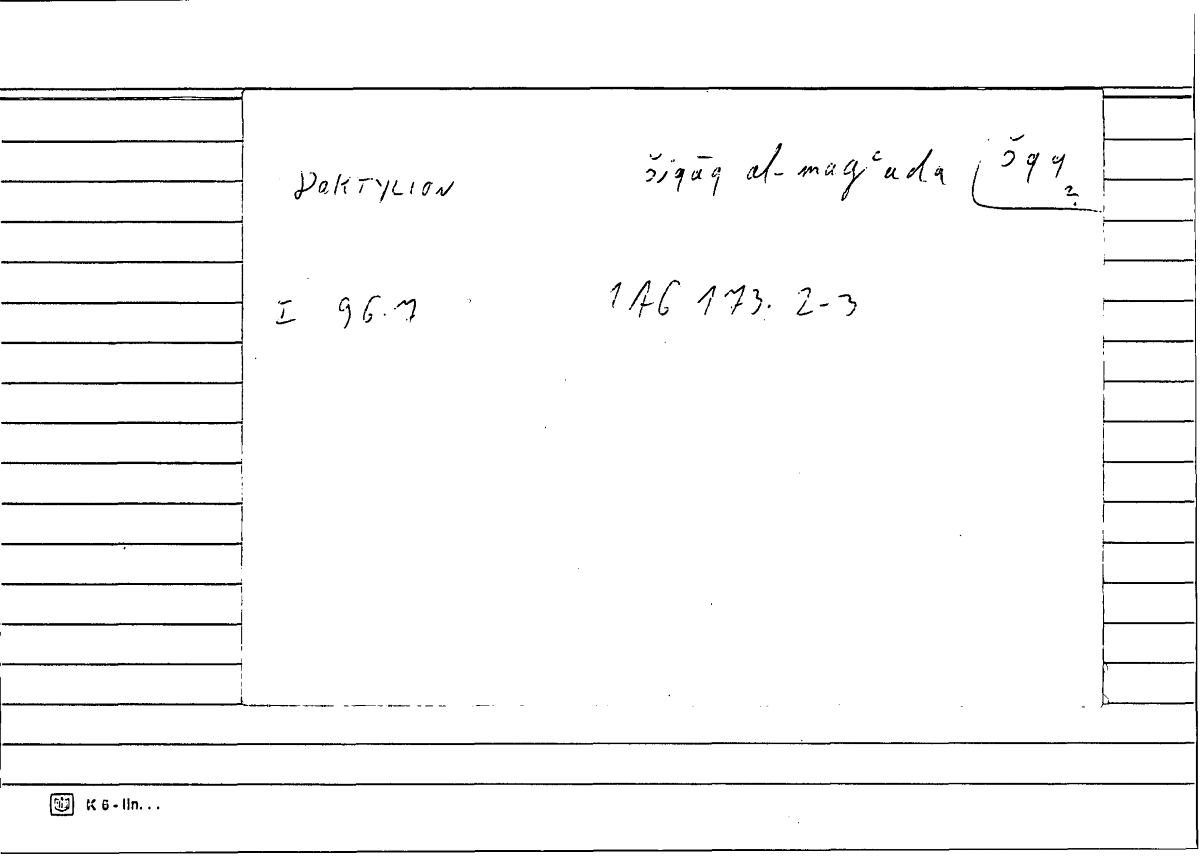 DaKTYLION šiqāq al-magʿada šqq ?
I 96.7 1AG 173. 2-3
K 6 - lin...